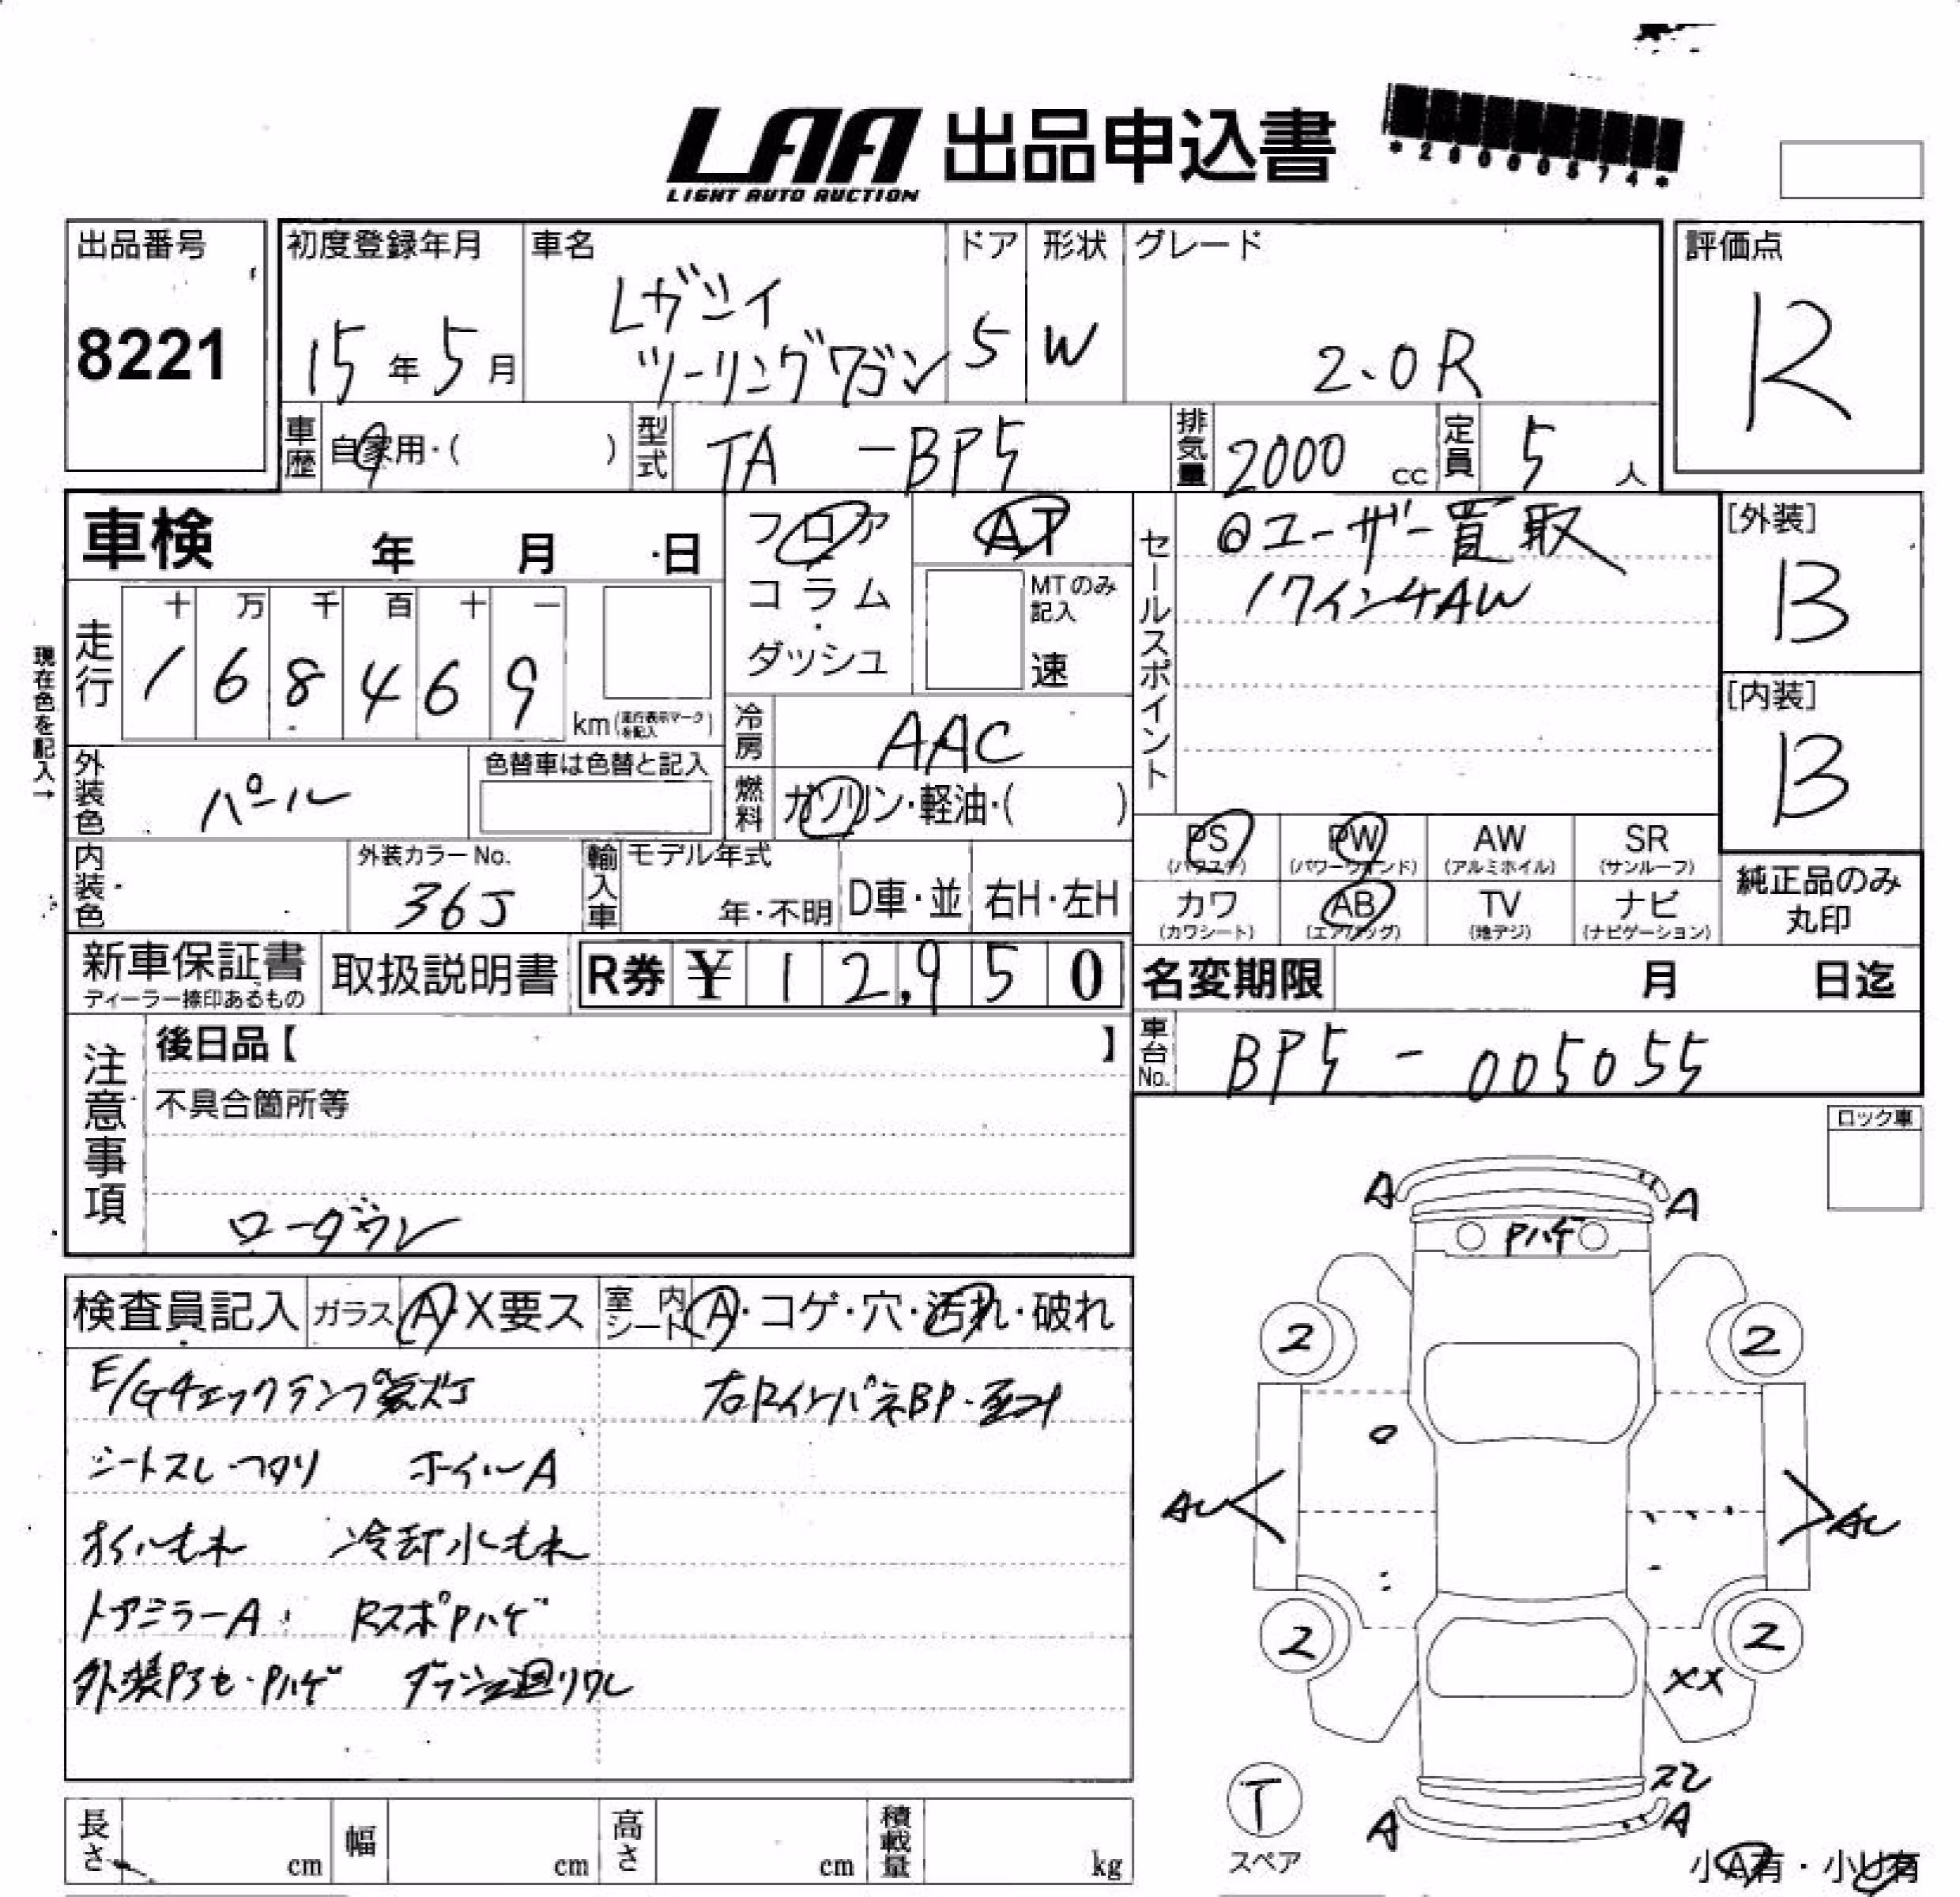 LAA 出品申込書
LIGHT AUTO AUCTION
出品番号
8221
初度登録年月
15年5月
車名
レガシィ
ツーリングワゴン
ドア
5
形状
W
グレード
2.0R
評価点
R
車歴
自家用・( )
型式
TA -BP5
排気量
2000 cc
定員
5 人
車検 年 月 日
フロア
コラム
・
ダッシュ
AT
MTのみ
記入
速
セールスポイント
◎ユーザー買取
17インチAW
[外装]
B
[内装]
B
現在色を記入→
走行
十 万 千 百 十 一
1 6 8 4 6 9
km(走行表示マークを記入)
冷房
AAC
燃料
ガソリン・軽油・( )
外装色
パール
色替車は色替と記入
内装色
外装カラーNo.
36J
輸入車
モデル年式
年・不明
D車・並
右H・左H
PS
(パワステ)
PW
(パワーウインド)
AW
(アルミホイル)
SR
(サンルーフ)
カワ
(カワシート)
AB
(エアバッグ)
TV
(地デジ)
ナビ
(ナビゲーション)
純正品のみ
丸印
新車保証書
ディーラー捺印あるもの
取扱説明書
R券 ¥ 1 2,9 5 0
名変期限 月 日迄
車台No.
BP5 - 005055
注意事項
後日品【 】
不具合箇所等
ローダウン
ロック車
検査員記入
ガラス
A・X要ス
室内シート
A・コゲ・穴・汚れ・破れ
E/Gチェックランプ
右Rインパネ BP・
シートスレ・ ホイルA
オイルもれ 冷却水もれ
ドアミラーA Rスポ Pハゲ
外装 Pハゲ 廻りワレ
A A
Pハゲ
2 2
2 2
XX
A A
T
スペア
小A有・小U有
長さ cm
幅 cm
高さ cm
積載量 kg